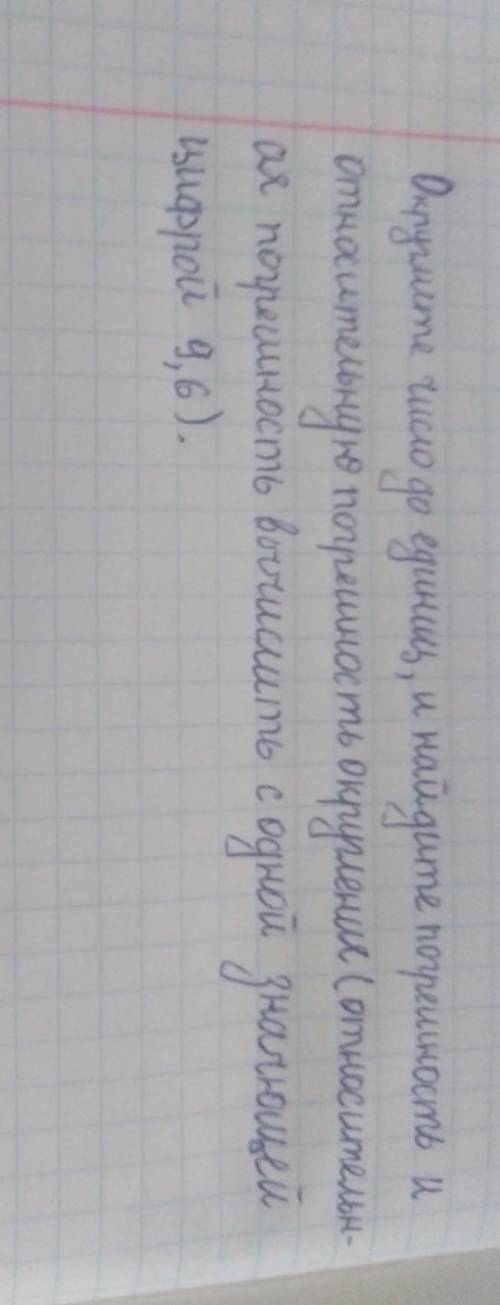 Округлите число до единиц, и найдите погрешность и
относительную погрешность округления (относительн-
ая погрешность вычислить с одной значющей
цифрой 9,6).